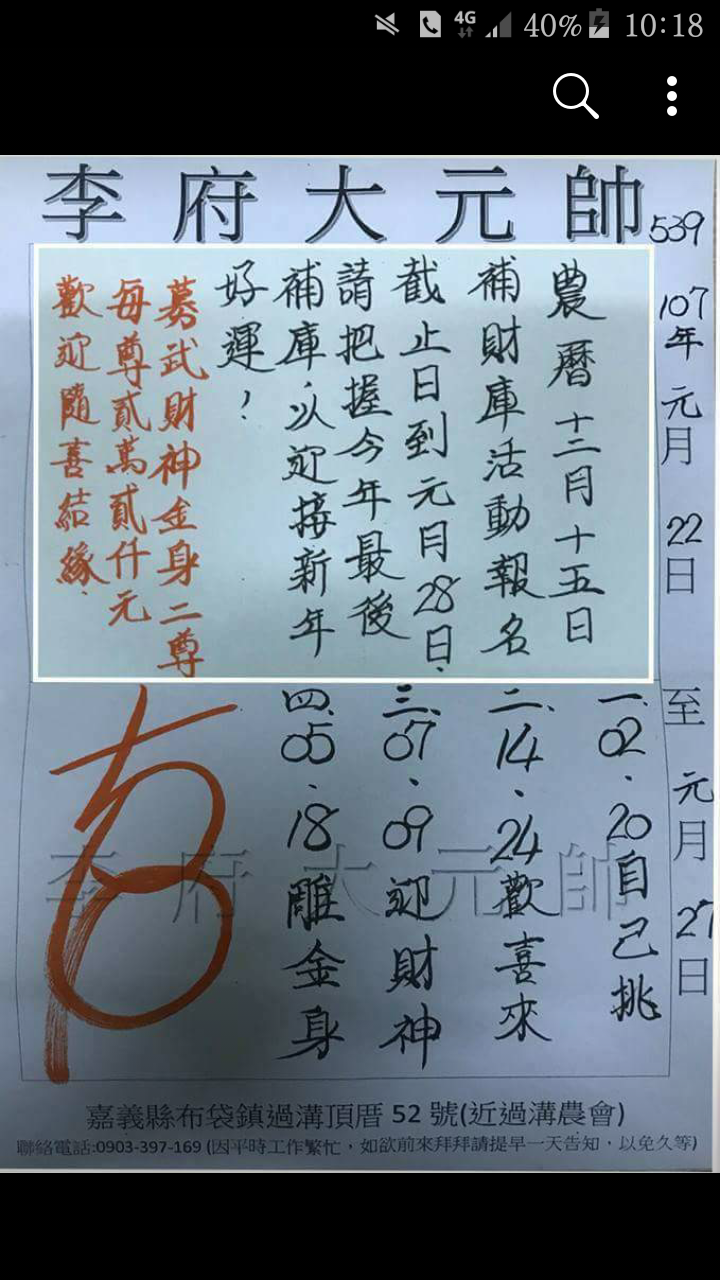 40% 10:18
4G
李府大元帥
539
107年元月22日至元月27日
農曆十二月十五日
補財庫活動報名
截止日到元月28日.
請把握今年最後
補庫.以迎接新年
好運!
募武財神金身二尊
每尊貳萬貳仟元
歡迎隨喜結緣.
一.02.20自己挑
二、14、24歡喜來
三、07、09迎財神
四、05、18雕金身
李府大元帥
嘉義縣布袋鎮過溝頂厝 52 號(近過溝農會)
聯絡電話:0903-397-169 (因平時工作繁忙,如欲前來拜拜請提早一天告知,以免久等)